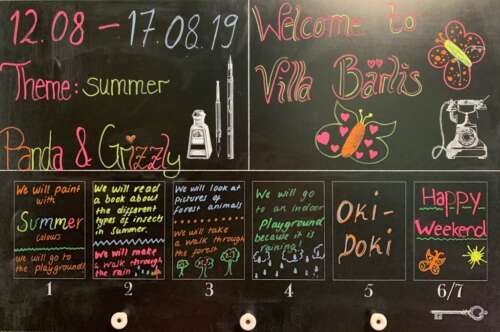 12.08 - 17.08.19
Theme: summer
Panda & Grizzly
Welcome to
Villa Bärlis
We will paint
with
Summer
colours
We will go to
the playground!
1
We will read
a book about
the different
types of insects
in Summer.
We will make
a walk through
the rain
2
We will look at
pictures of
forest animals
We will take
a walk through
the forest
3
We will go
to an indoor
Playground
because it is
raining
4
OKi-
DoKi
5
Happy
Weekend
6/7